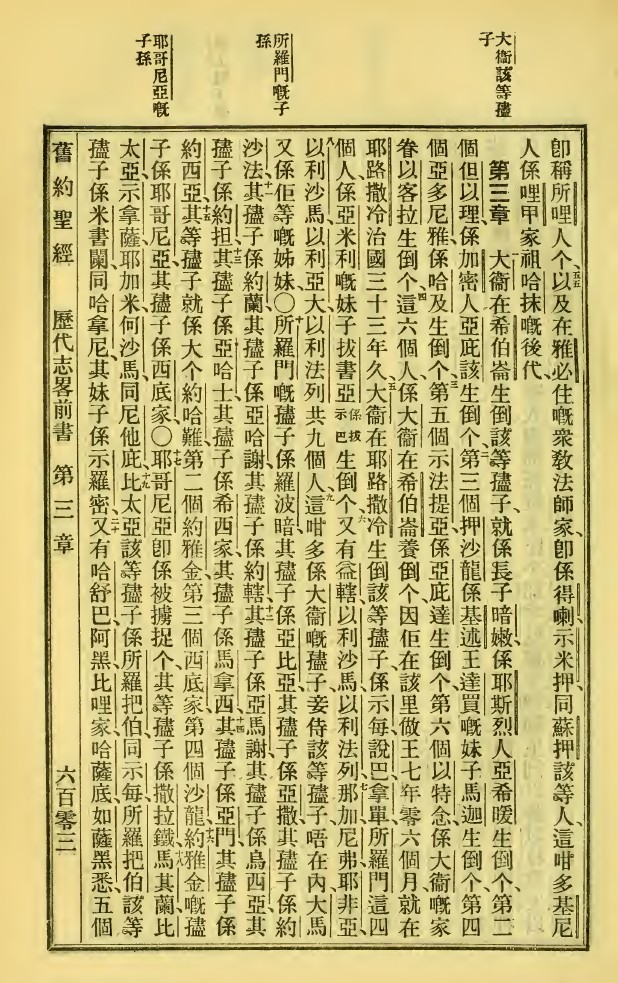 大衞該等孻
子
所羅門嘅子
孫
耶哥尼亞嘅
子孫
卽稱所哩人个以及在雅必住嘅衆敎法師家卽係得喇示米押同蘇押該等人這咁多基尼
五五
人係哩甲家祖哈抹嘅後代
第三章 大衞在希伯崙生倒該等孻子就係長子暗嫩係耶斯烈人亞希暖生倒个第二
一
個但以理係加密人亞庇該生倒个第三個押沙龍係基述王達買嘅妹子馬迦生倒个第四
二
個亞多尼雅係哈及生倒个第五個示法提亞係亞庇達生倒个第六個以特念係大衞嘅家
三
眷以客拉生倒个這六個人係大衞在希伯崙養倒个因佢在該里做王七年零六個月就在
四
耶路撒冷治國三十三年久大衞在耶路撒冷生倒該等孻子係示每說巴拿單所羅門這四
五
個人係亞米利嘅妹子拔書亞係拔示巴生倒个又有益轄以利沙馬以利法列那加尼弗耶非亞
六 七
以利沙馬以利亞大以利法列共九個人這咁多係大衞嘅孻子妾侍該等孻子唔在內大馬
八 九
又係佢等嘅姊妹〇所羅門嘅孻子係羅波暗其孻子係亞比亞其孻子係亞撒其孻子係約
十
沙法其孻子係約蘭其孻子係亞哈謝其孻子係約轄其孻子係亞馬謝其孻子係烏西亞其
十一 十二
孻子係約担其孻子係亞哈士其孻子係希西家其孻子係馬拿西其孻子係亞門其孻子係
十三 十四
約西亞其等孻子就係大个約哈難第二個約雅金第三個西底家第四個沙龍約雅金嘅孻
十五 十六
子係耶哥尼亞其孻子係西底家〇耶哥尼亞卽係被擄捉个其等孻子係撒拉鐵馬其蘭比
十七 十八
太亞示拿薩耶加米何沙馬同尼他庇比太亞該等孻子係所羅把伯同示每所羅把伯該等
十九
孻子係米書闌同哈拿尼其妹子係示羅密又有哈舒巴阿黑比哩家哈薩底如薩黑悉五個
二十
舊約聖經 歷代志畧前書 第三章 六百零三